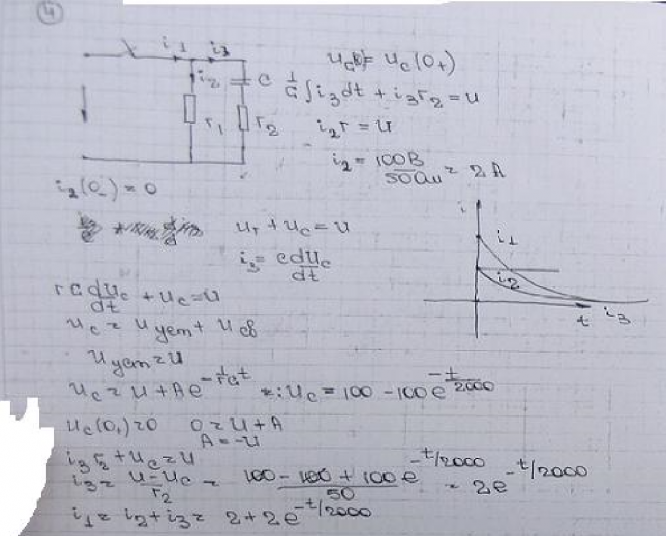 4
i₁ i₃
i₂ C
r₁ r₂
u_c(0₋) = u_c(0₊)
1/C ∫ i₃ dt + i₃r₂ = u
i₂r = u
i₂ = 100В/50Ом = 2 А
i₂(0₋) = 0
u_r + u_c = u
i₃ = c du_c/dt
i
i₁
i₂
t i₃
rC du_c/dt + u_c = u
u_c = u уст + u св
u уст = u
u_c = u + A e^(-1/rc t) u_c = 100 - 100 e^(-t/2000)
u_c(0₊) = 0 0 = u + A
A = -u
i₃r₂ + u_c = u
i₃ = (u - u_c)/r₂ = (100 - 100 + 100 e^(-t/2000))/50 = 2e^(-t/2000)
i₁ = i₂ + i₃ = 2 + 2e^(-t/2000)